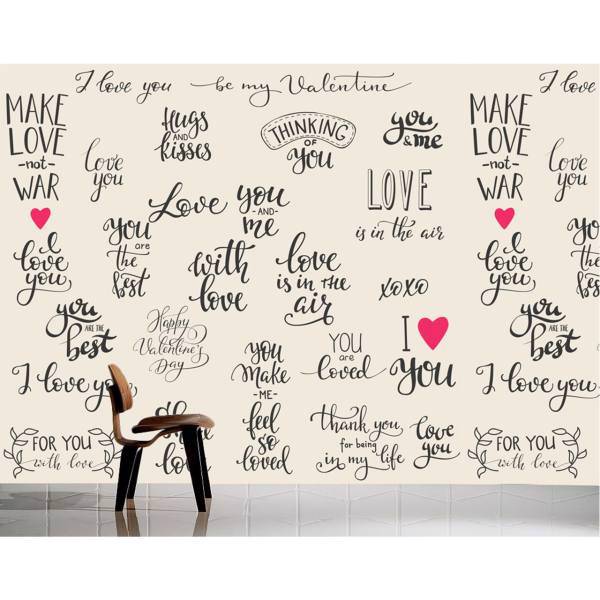 I love you be my Valentine
I love
MAKE
LOVE
-not-
WAR
Hugs
AND
kisses
THINKING
OF
You
you
& me
MAKE
LOVE
-not-
WAR
love
you
love
you
Love
you
-AND-
me
LOVE
is in the air
You
are
the
Best
I
love
you
with
love
love
is in the
air
xoxo
I
love
you
you
ARE THE
best
Happy
Valentine's
Day
YOU
are
loved
I
You
you
ARE THE
best
I love you
you
Make
-ME-
feel
so
loved
I love you
FOR YOU
with love
love
Thank you,
for being
in my life
Love
you
FOR YOU
with love